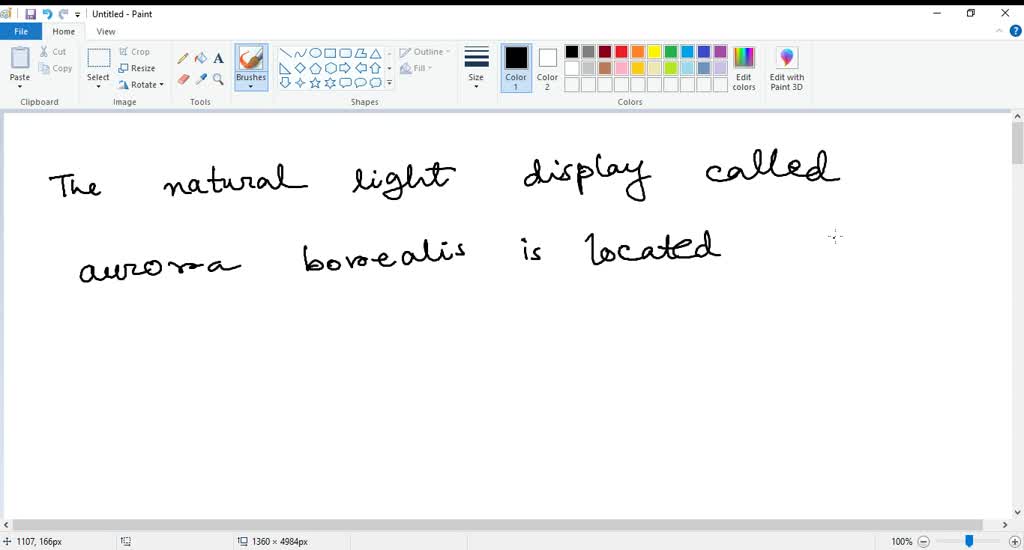 Untitled - Paint
File Home View
Paste Cut Copy Clipboard
Select Crop Resize Rotate Image
Tools
Brushes
Shapes Outline Fill
Size
Color 1 Color 2 Colors
Edit colors
Edit with Paint 3D
The natural light display called
aurora borealis is located
1107, 166px 1360 × 4984px 100%